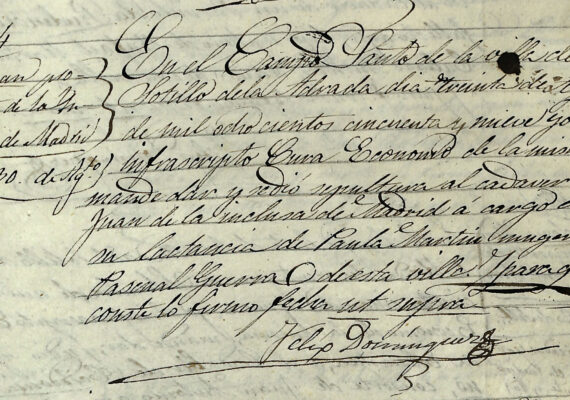 4
an pro
de la Yn
de Madrid
30. de Agto
En el Campo Santo de la villa de
Sotillo de la Adrada dia treinta de Ag
de mil ochocientos cincuenta y nueve yo
infrascripto Cura Economo de la mis
mandé dar y se dió sepultura al cadaver
Juan de la inclusa de Madrid á cargo
su lactancia de Paula Martin muger
Pascual Guerra de esta villa Yparaq
conste lo firmo fecha ut supra
Felix Dominguez